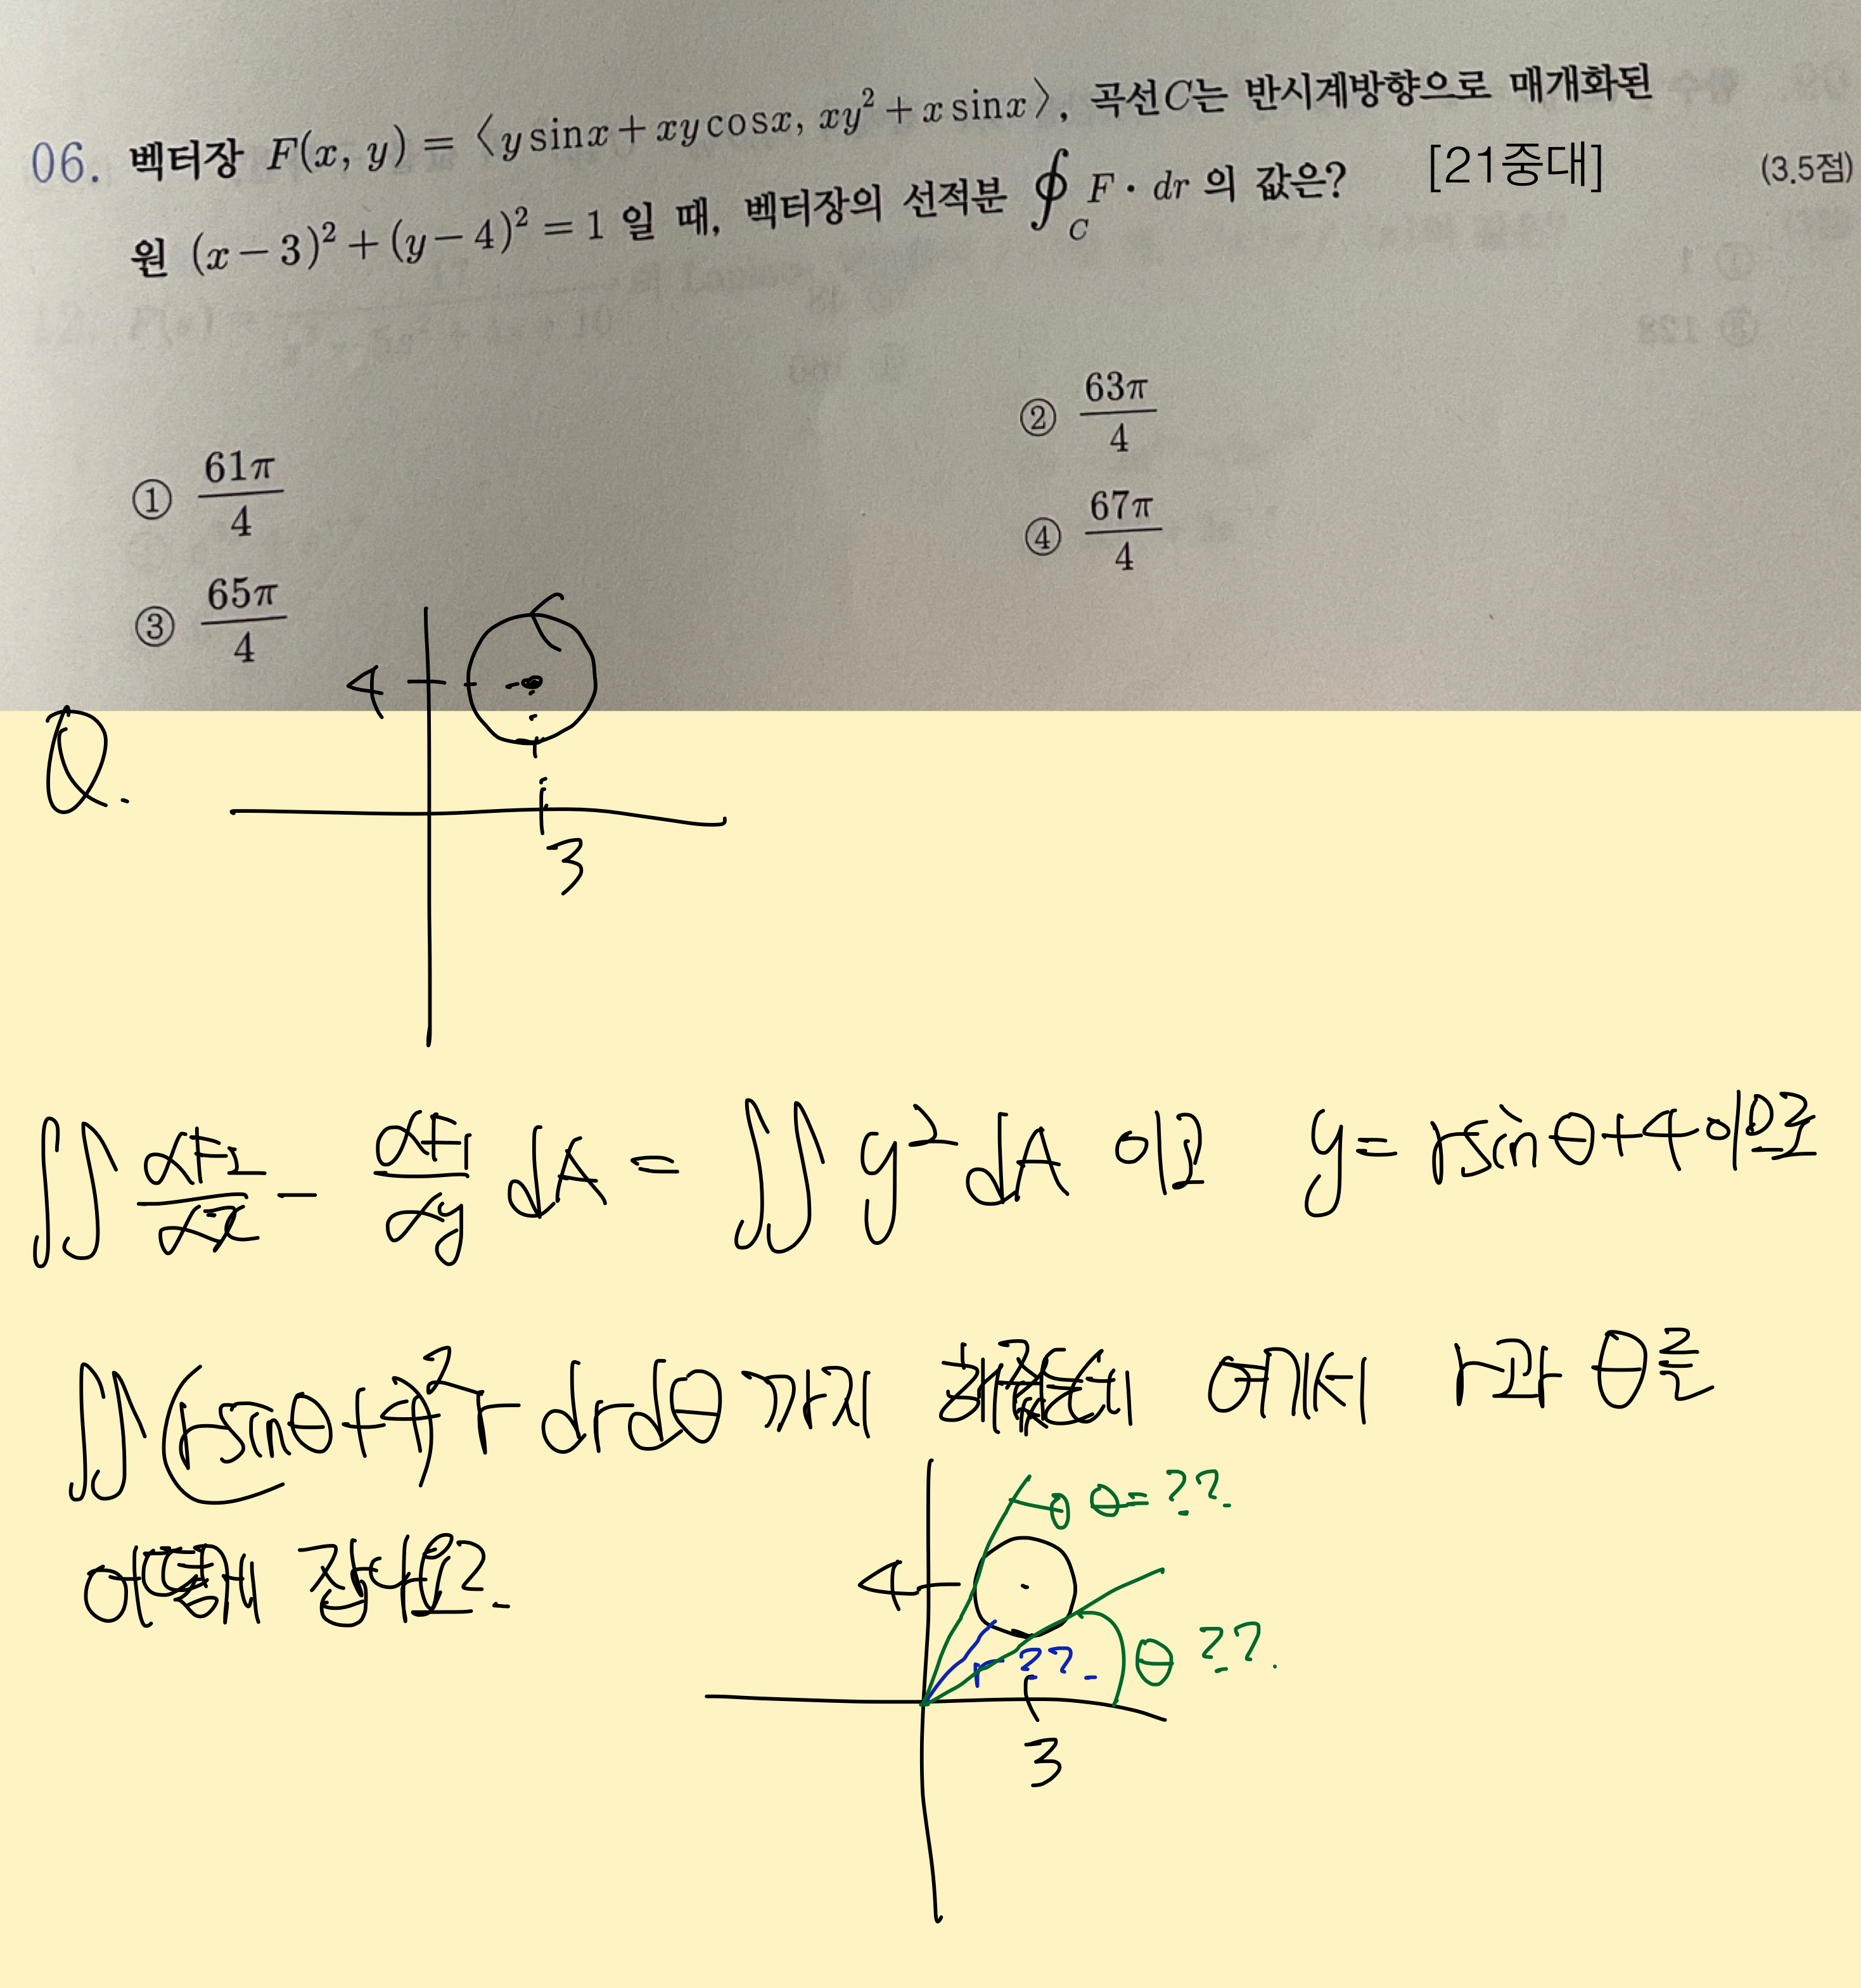 06. 벡터장 F(x, y) = ⟨y sinx + xy cosx, xy² + x sinx⟩, 곡선C는 반시계방향으로 매개화된
원 (x-3)² + (y-4)² = 1 일 때, 벡터장의 선적분 ∮_C F · dr 의 값은? [21중대] (3.5점)
① 61π/4
② 63π/4
③ 65π/4
④ 67π/4
Q.
4
3
∬ ∂F₂/∂x - ∂F₁/∂y dA = ∬ y² dA 이고 y = rsinθ+4 이므로
∬ (rsinθ+4)² r drdθ 까지 했는데 여기서 r과 θ를
어떻게 잡나요?
θ = ??
4
r ??
θ ??
3